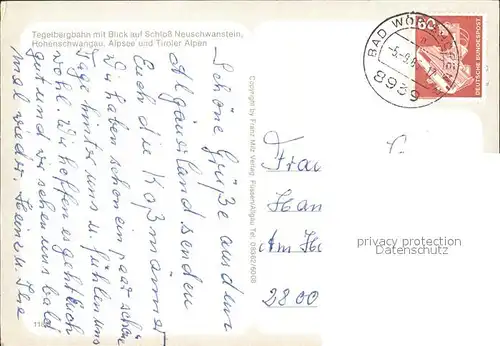 Tegelbergbahn mit Blick auf Schloß Neuschwanstein,
Hohenschwangau, Alpsee und Tiroler Alpen
Schöne Grüße aus dem
Algäuerland senden
Euch die Koßmänner
Wir haben schon ein paar schöne
Tage hinter uns u. fühlen uns
wohl. Wir hoffen es geht Euch
gut und wir sehen uns bald
mal wieder. Heinz u. Ilse
Copyright by Franz Milz Verlag, Füssen/Allgäu Tel. 08362/6008
110
BAD WÖRISHOFEN
8939
60
DEUTSCHE BUNDESPOST
Frau
Han
Am H
2800
privacy protection
Datenschutz